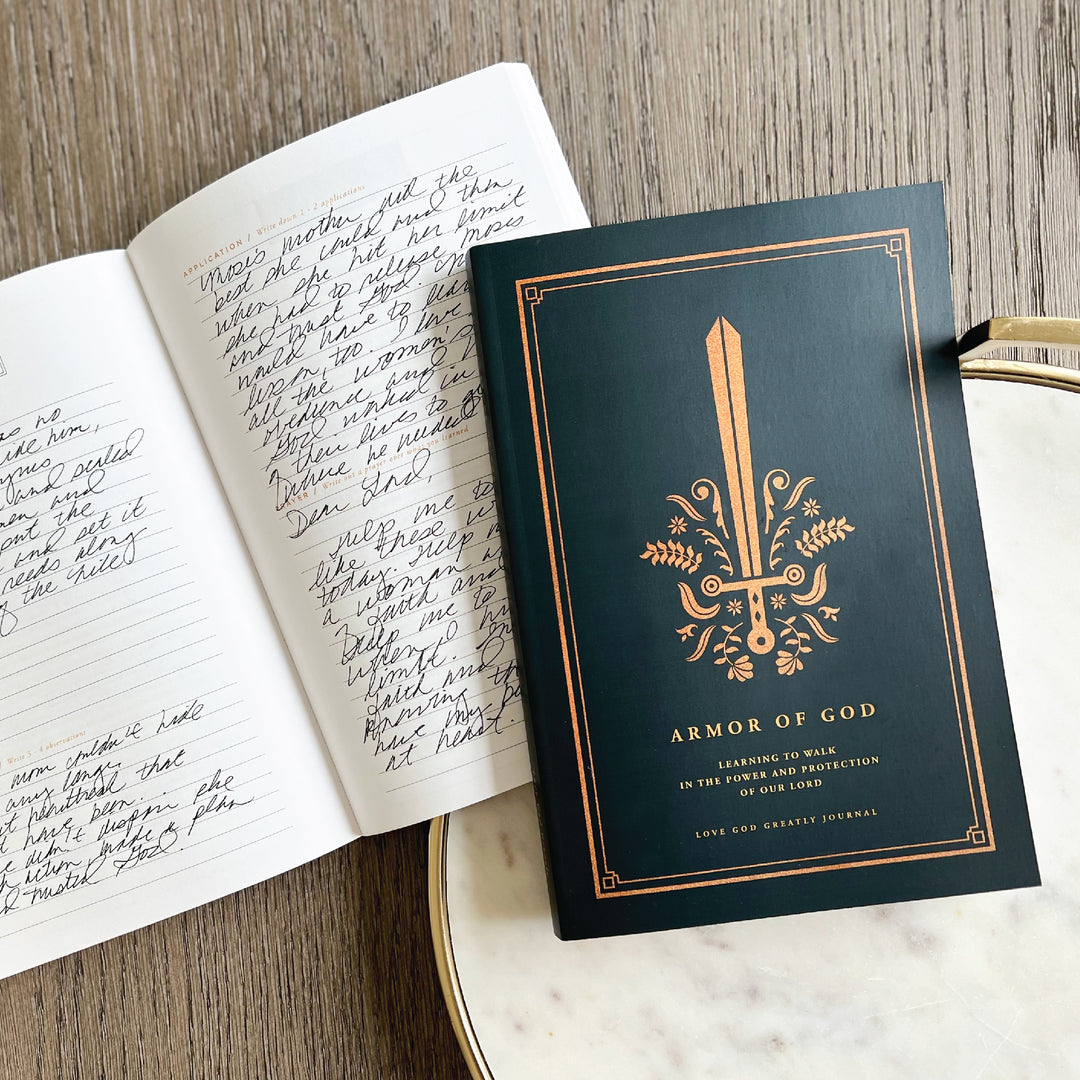 as no
ide him,
and sealed
men and
put the
and set it
reeds along
of the Nile
Write 3 - 4 observations
mom couldn't hide
any longer
heartbreak that
have been.
didn't despair she
action made a plan
trusted God.
APPLICATION / Write down 1 - 2 applications
Moses mother did the
best she could and then
when she hit her limit
she had to release Moses
and trust God.
would have to
lesson, too. I love
all the women's
obedience and
God worked in
their lives to
where he needed
PRAYER / Write out a prayer over what you learned
Dear Lord,
Help me to
like these
today. Help
a woman
faith and
Help me to
when I
limit.
faith and
knowing
have my
at heart.
ARMOR OF GOD
LEARNING TO WALK
IN THE POWER AND PROTECTION
OF OUR LORD
LOVE GOD GREATLY JOURNAL